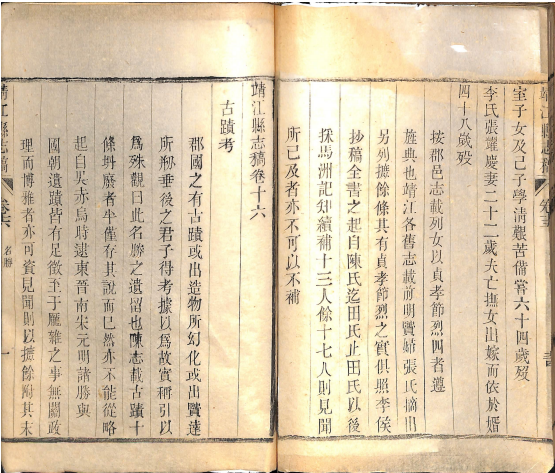 靖江縣志稿
室子女及己子學清艱苦備嘗六十四歲歿
李氏張燿慶妻二十二歲夫亡撫女出嫁而依於婿
四十八歲歿
按郡邑志載列女以貞孝節烈四者遵
旌典也靖江各舊志載前明賢婦張氏摘出
另列摭餘條其有貞孝節烈之實俱照李侯
抄稿全書之起自陳氏迄田氏止田氏以後
採馬洲記知續補十三人餘十七人則見聞
所已及者亦不可以不補
靖江縣志稿卷十六
古蹟考
郡國之有古蹟或出造物所幻化或出賢達
所剏垂後之君子得考據以爲故實稱引以
爲殊觀曰此名勝之遺留也陳志載古蹟十
條坍廢者半僅存其說而已然亦不能從略
起自吳赤烏時遠東晉南宋元明諸勝與
國朝遺蹟皆有足徵至于龐雜之事無關政
理而博雅者亦可資見聞則以摭餘附其末
靖江縣志稿
卷十六
名勝
一